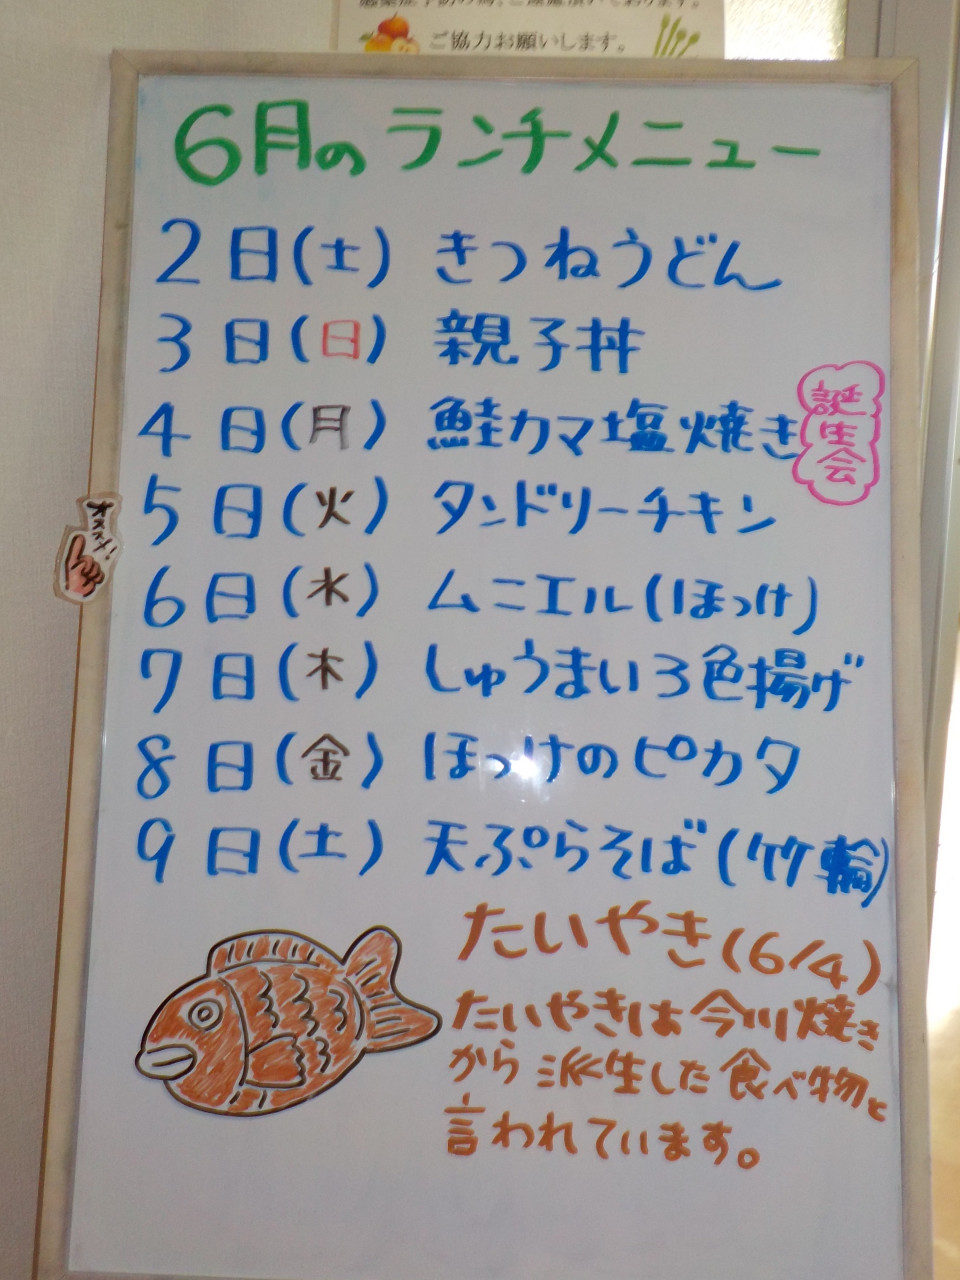 ご協力お願いします。
6月のランチメニュー
2日(土) きつねうどん
3日(日) 親子丼
4日(月) 鮭カマ塩焼き
誕生会
5日(火) タンドリーチキン
6日(水) ムニエル(ほっけ)
7日(木) しゅうまい3色揚げ
8日(金) ほっけのピカタ
9日(土) 天ぷらそば(竹輪)
たいやき(6/4)
たいやきは今川焼き
から派生した食べ物と
言われています。